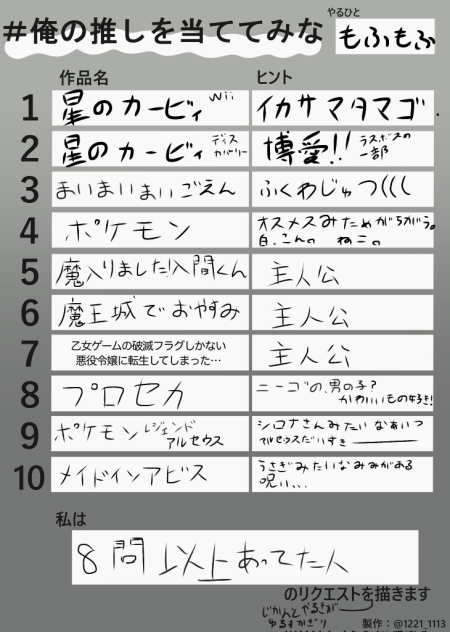 #俺の推しを当ててみな
やるひと
もふもふ
作品名 ヒント
1 星のカービィ Wii イカサマタマゴ.
2 星のカービィ ディスカバリー 博愛!! ラスボスの一部
3 まいまいまいごえん ふくわじゅつ(((
4 ポケモン オスメスみためがちがう。白、こんの ねこ。
5 魔入りました!入間くん 主人公
6 魔王城でおやすみ 主人公
7 乙女ゲームの破滅フラグしかない悪役令嬢に転生してしまった… 主人公
8 プロセカ ニーゴの、男の子? かわいいもの好き!
9 ポケモン レジェンド アルセウス シロナさんみたいなあいつ アルセウスだいすき
10 メイドインアビス うさぎみたいなみみがある 呪い、、、
私は
8問以上あってた人
のリクエストを描きます
じかんとやるきがゆるすかぎり
製作:@1221_1113